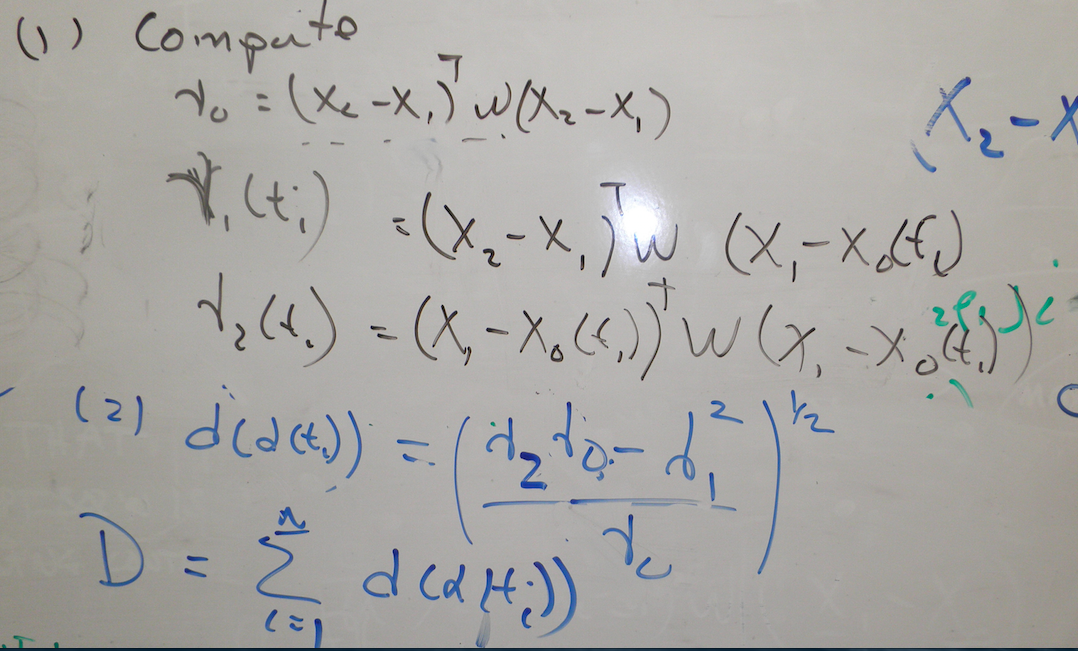 (1) Compute
γ₀ = (X₂ - X₁)ᵀ W (X₂ - X₁)
X₂ - X
γ₁(tᵢ) = (X₂ - X₁)ᵀ W (X₁ - X₀(tᵢ)
γ₂(tᵢ) = (X₁ - X₀(tᵢ))ᵀ W (X₁ - X₀(tᵢ))
(2) d(α(tᵢ)) = ((γ₂ γ₀ - γ₁²) / γ₀)^1/2
D = Σᵢ₌₁ⁿ d(α(tᵢ))